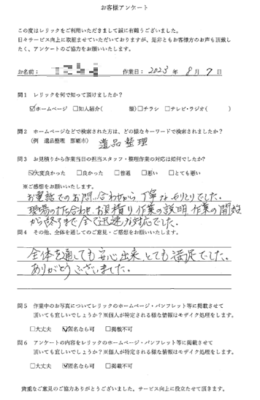 お客様アンケート
この度はレリックをご利用いただきまして誠に有難うございました。
日々サービス向上に取組ませていただいておりますが、是非ともお客様方のお声も頂戴したく、アンケートのご協力をお願いいたします。
お名前: 作業日: 2023年 8月 7日
問1 レリックを何で知って頂けましたか？
☑ホームページ □知人紹介( 様) □チラシ □テレビ・ラジオ( )
問2 ホームページなどで検索された方は、どの様なキーワードで検索されましたか？
(例 遺品整理 那覇市) 遺品整理
問3 お見積りから作業当日の担当スタッフ・整理作業の対応は如何でしたか？
☑大変良かった □良かった □普通 □悪い □とても悪い
※ご感想をお願いいたします。
お電話でのお問い合わせから丁寧なやりとりでした。
現場の打ち合わせ、お見積り、作業の説明、作業の開始
から終了まで全て迅速な対応でした。
問4 その他、全体を通してのご意見・ご感想をお願いいたします。
全体を通しても安心出来とても満足でした。
ありがとうございました。
問5 作業中のお写真についてレリックのホームページ・パンフレット等に掲載させて
頂いても宜しいでしょうか？※個人が特定される様な情報はモザイク処理をします。
□大丈夫 ☑匿名なら可 □掲載不可
問6 アンケートの内容をレリックのホームページ・パンフレット等に掲載させて
頂いても宜しいでしょうか？※個人が特定される様な情報はモザイク処理をします。
□大丈夫 ☑匿名なら可 □掲載不可
貴重なご意見のご協力ありがとうございました。サービス向上に役立たせて頂きます。